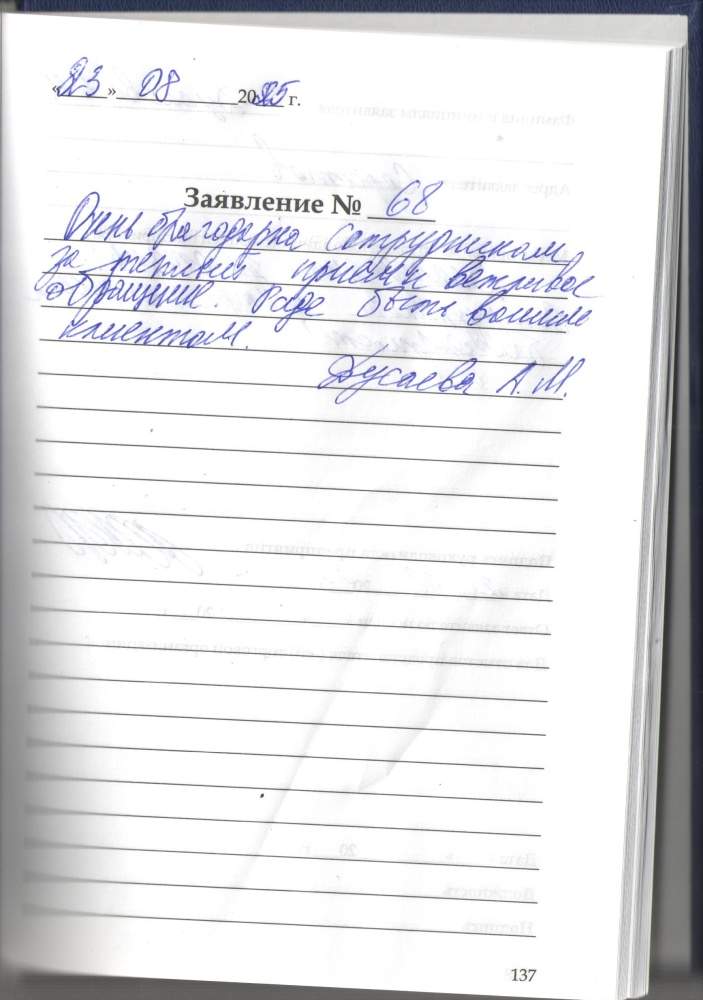 «23» 08 2025 г.
Заявление № 68
Очень благодарна сотрудникам
за теплый прием и вежливое
обращение. Рада быть вашим
клиентом.
Дусаева А.М.
137